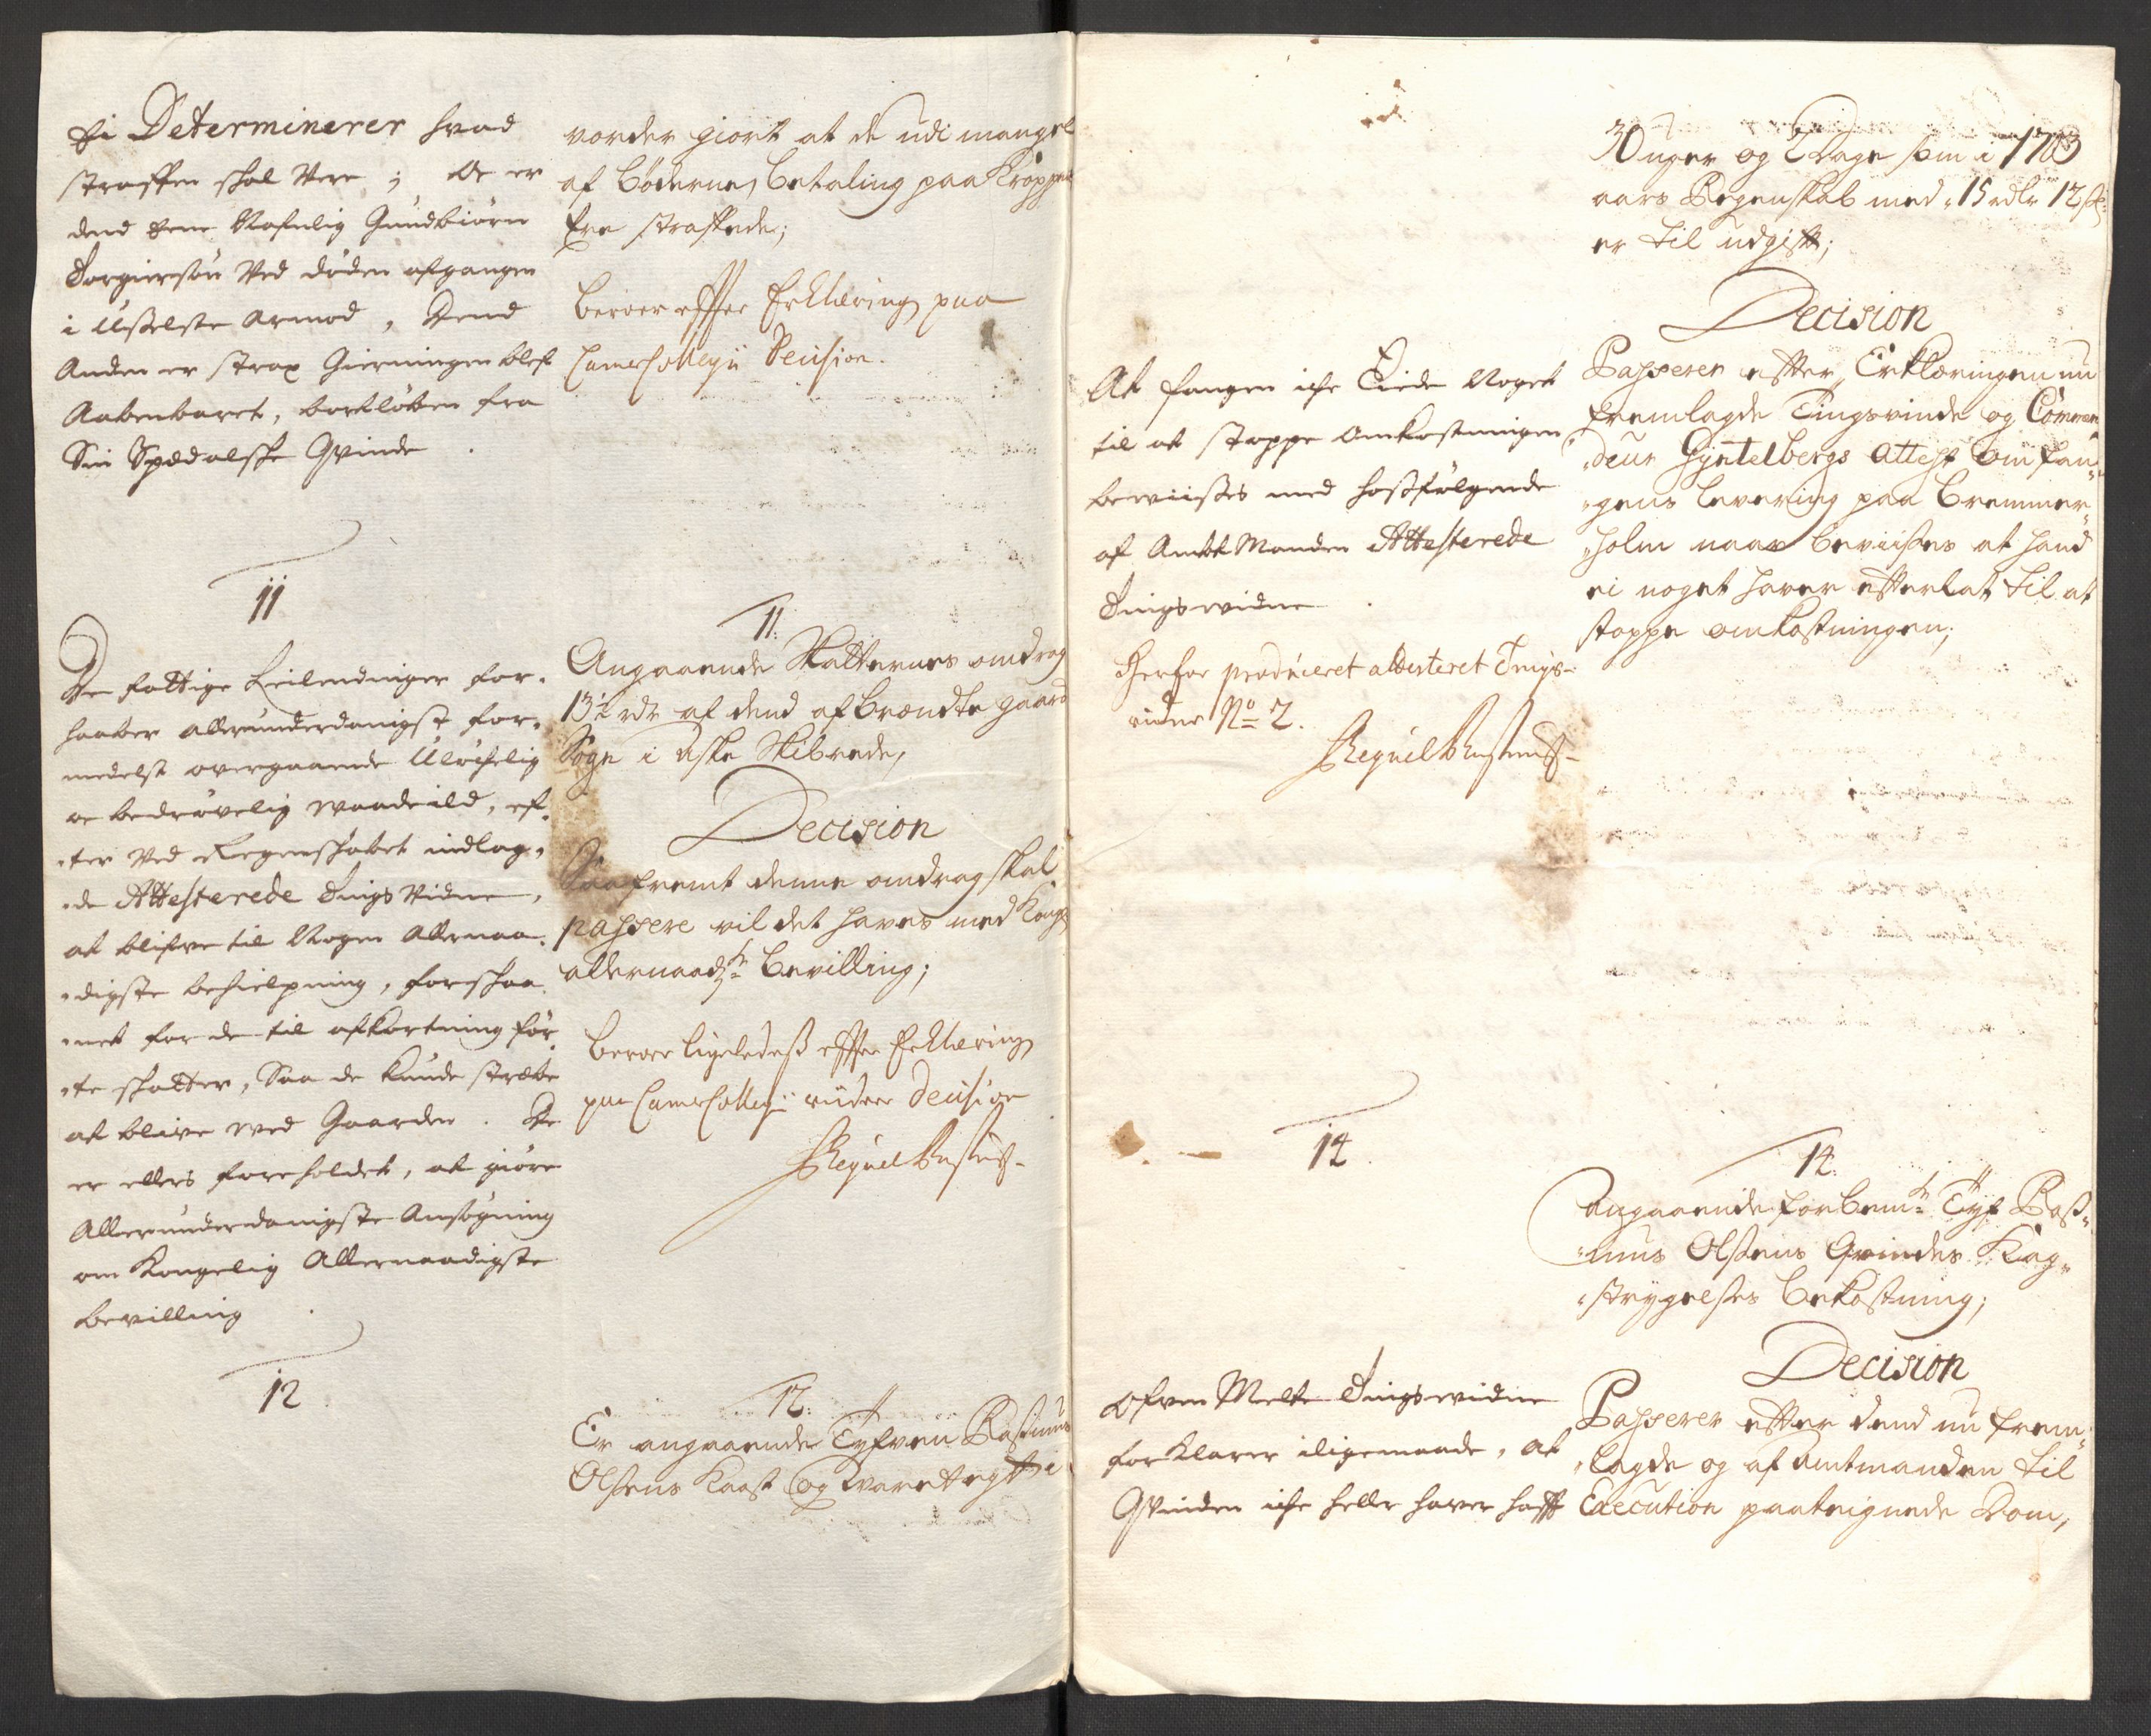 Ei Determinerer hvad
straffen skal Vere ; De er
dend Eene Nafnlig Gundbiørn
Torgiersøn Ved døden afgangen
i Usselste armod , Dend
Anden er strax Gierningen blef
Aabenbaret, bortløben fra
Sin Spedalske Qvinde .
11
De fattige Leilendinger for-
haaber allerunderdanigst for-
medelst overgaaende Uløchelig
oc bedrøvelig vaade ild, ef-
ter Ved Regenskabet indlag-
de Attesterede Tings Vidne ,
at blifve til Nogen Allernaa-
digste behielpning , forskaa-
net for de til afkortning før-
te skatter, Saa de kunde stræbe
at blive ved Gaarden . De
er ellers foreholdet, at giøre
Allerunderdanigste Ansøgning
om Kongelig Allernaadigste
bevilling .
12
vorder giort at de udi mangel
af bødernes betaling paa Kroppen
ere straffede;
beroer efter Erklæring paa
Cammer Collegii Decision.
11:
Angaaende Skatternes omdrag
13½ rdr af dend afbrendte gaard
Søgn i Aske Skibrede,
Decision
Saafremt denne omdrag skal
passere vil det haves med Kongl
allernaadste bevilling;
beroer ligeledeß efter Erklæring
paa Cammer Collegii videre Decision
12:
Er angaaende Tyfven Rasmus
Olsens Kaast og Varetegt i
At fangen iche Eiede Noget
til at stoppe omkostningen
beviises med hosfølgende
af Amtmanden Attesterede
Tingsvidne .
Herfor produceret attesteret Tings-
vidne No 2.
14
Ofven Melte Tingsvidne
forklarer iligemaade, at
Qvinden iche heller haver hafft
30 uger og 2 Dage som i 1703
aars Regenskab med 15 rdlr 12 sk:
er til udgift;
Decision
Passerer efter Erklæringen nu
fremlagde Tingsvinde og Comman
deur Gyntelbergs attest om fan-
gens levering paa Bremmer-
holm naar beviises at hand
ei noget haver efterlat til at
stoppe omkostningen;
14:
Angaaende forbemte Tyf Ras-
mus Olsens Qvindes Kag-
strygelses bekostning;
Decision
Passerer efter dend nu frem-
lagde og af amtmanden til
Execution paateignede Dom,